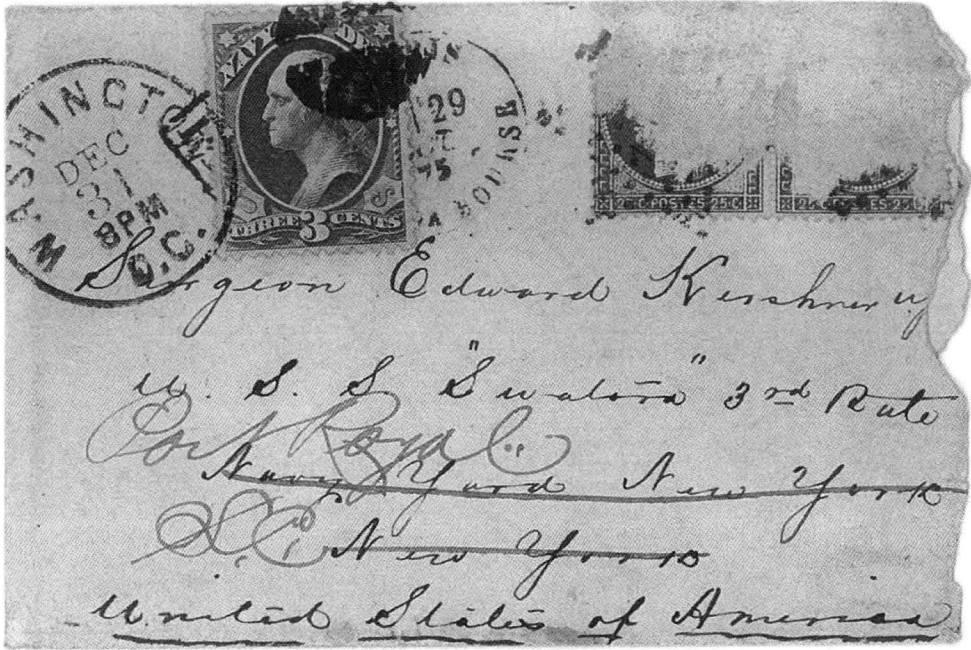 WASHINGTON
DEC
31
8PM
D.C.
NAVY
THREE 3 CENTS
29
75
25 C. POSTES 25 C.
25 C. POSTES 25
Surgeon Edward Kershner
U. S. S. "Swatara" 3rd Rate
Port Royal
Navy Yard New York
S.C. New York
United States of America